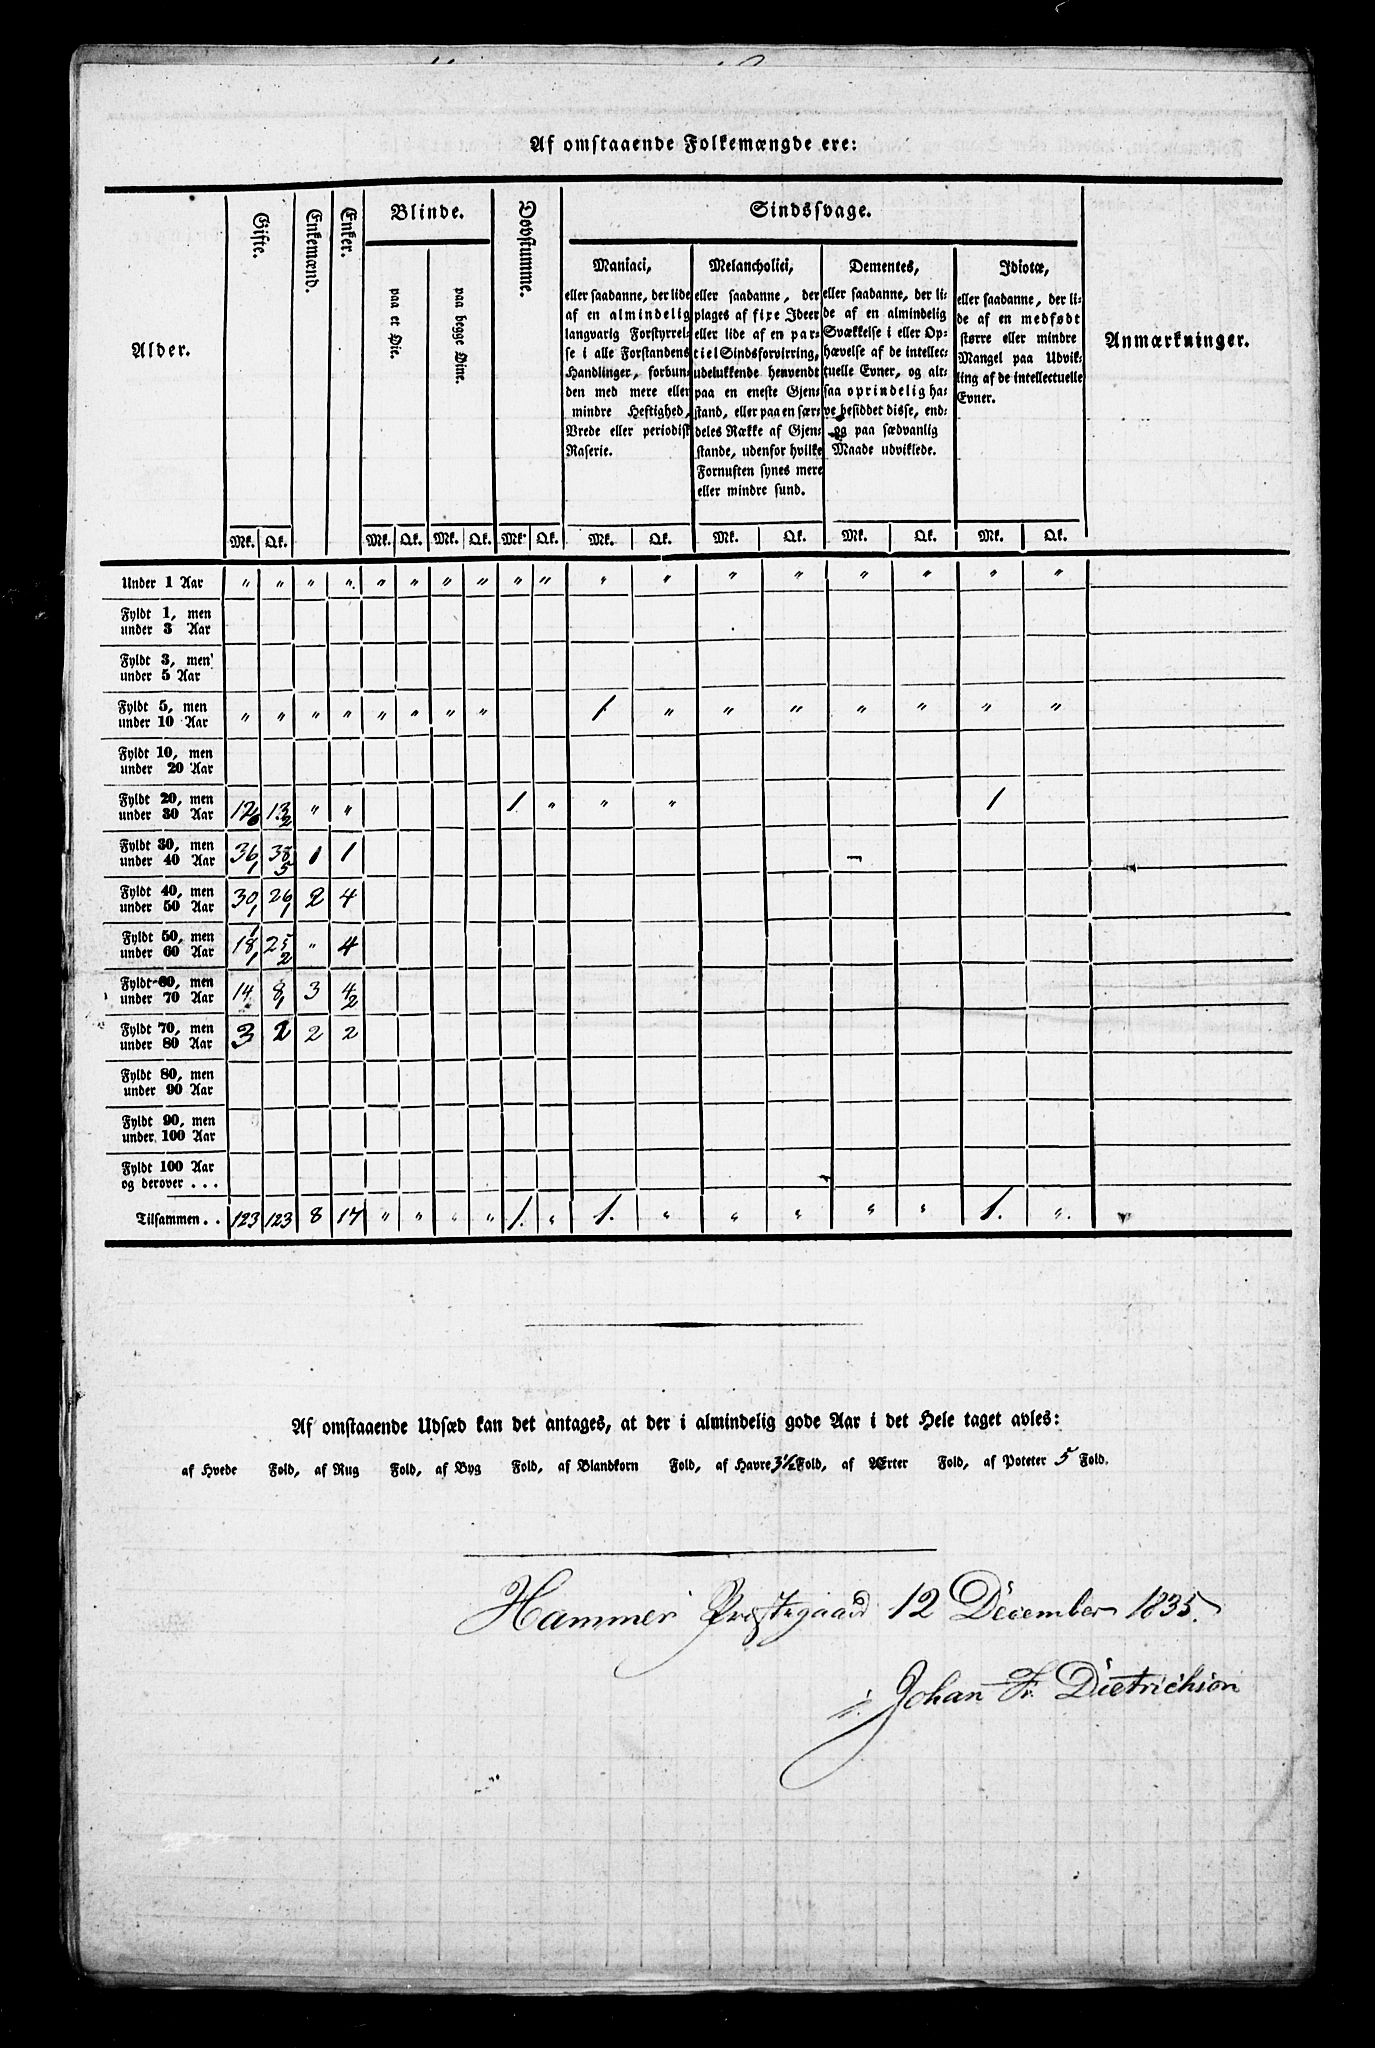 Af omstaaende Folkemængde ere:
Alder.
Gifte.
Enkemænd.
Enker.
Blinde.
paa et Øie.
paa begge Øine.
Døvstumme.
Sindssvage.
Maniaci,
eller saadanne, der lide
af en almindelig
langvarig Forstyrrel-
se i alle Forstandens
Handlinger, forbun-
den med mere eller
mindre Heftighed,
Vrede eller periodisk
Raserie.
Melancholici,
eller saadanne, der
plages af fixe Ideer
eller lide af en par-
tiel Sindsforvirring,
udelukkende henvendt
paa en eneste Gjen-
stand, eller paa en sær-
deles Række af Gjen-
stande, udenfor hvilke
Fornuften synes mere
eller mindre sund.
Dementes,
eller saadanne, der li-
de af en almindelig
Svækkelse i eller Op-
hævelse af de intellec-
tuelle Evner, og alt-
saa oprindelig ha-
ve besiddet disse, end-
og paa sædvanlig
Maade udviklede.
Idiotæ,
eller saadanne, der li-
de af en medfødt
større eller mindre
Mangel paa Udvik-
ling af de intellectuelle
Evner.
Anmærkninger.
Mk. Qk. Mk. Qk. Mk. Qk. Mk. Qk. Mk. Qk. Mk. Qk. Mk. Qk. Mk. Qk.
Under 1 Aar " " " " " " " " " " " " " " " " " "
Fyldt 1, men
under 3 Aar
Fyldt 3, men
under 5 Aar
Fyldt 5, men
under 10 Aar " " " " " " " " 1. " " " " " " "
Fyldt 10, men
under 20 Aar
Fyldt 20, men
under 30 Aar 12 13 2 " " 1. " " " 1
Fyldt 30, men
under 40 Aar 36 1 38 5 1 1
Fyldt 40, men
under 50 Aar 30 1 26 1 2 4
Fyldt 50, men
under 60 Aar 18 1 25 2 " 4
Fyldt 60, men
under 70 Aar 14 8 1 3 4 2
Fyldt 70, men
under 80 Aar 3 2 2 2
Fyldt 80, men
under 90 Aar
Fyldt 90, men
under 100 Aar
Fyldt 100 Aar
og derover . . .
Tilsammen . . 123 123 8 17 " " " " 1. " 1. " " " " " 1. "
Af omstaaende Udsæd kan det antages, at der i almindelig gode Aar i det Hele taget avles:
af Hvede Fold, af Rug Fold, af Byg Fold, af Blandkorn Fold, af Havre 3½ Fold, af Ærter Fold, af Poteter 5 Fold.
Hammer Præstegaard 12 December 1835.
Johan Fr. Dietrichson